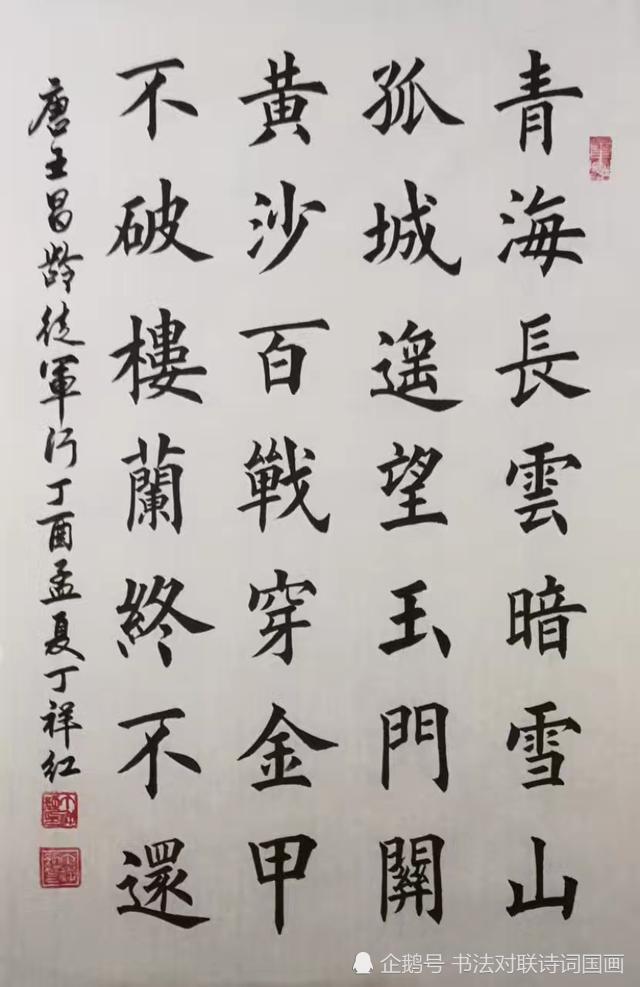 青海長雲暗雪山
孤城遥望玉門關
黄沙百戰穿金甲
不破樓蘭終不還
唐王昌齡從軍行丁酉孟夏丁祥红
企鹅号 书法对联诗词国画